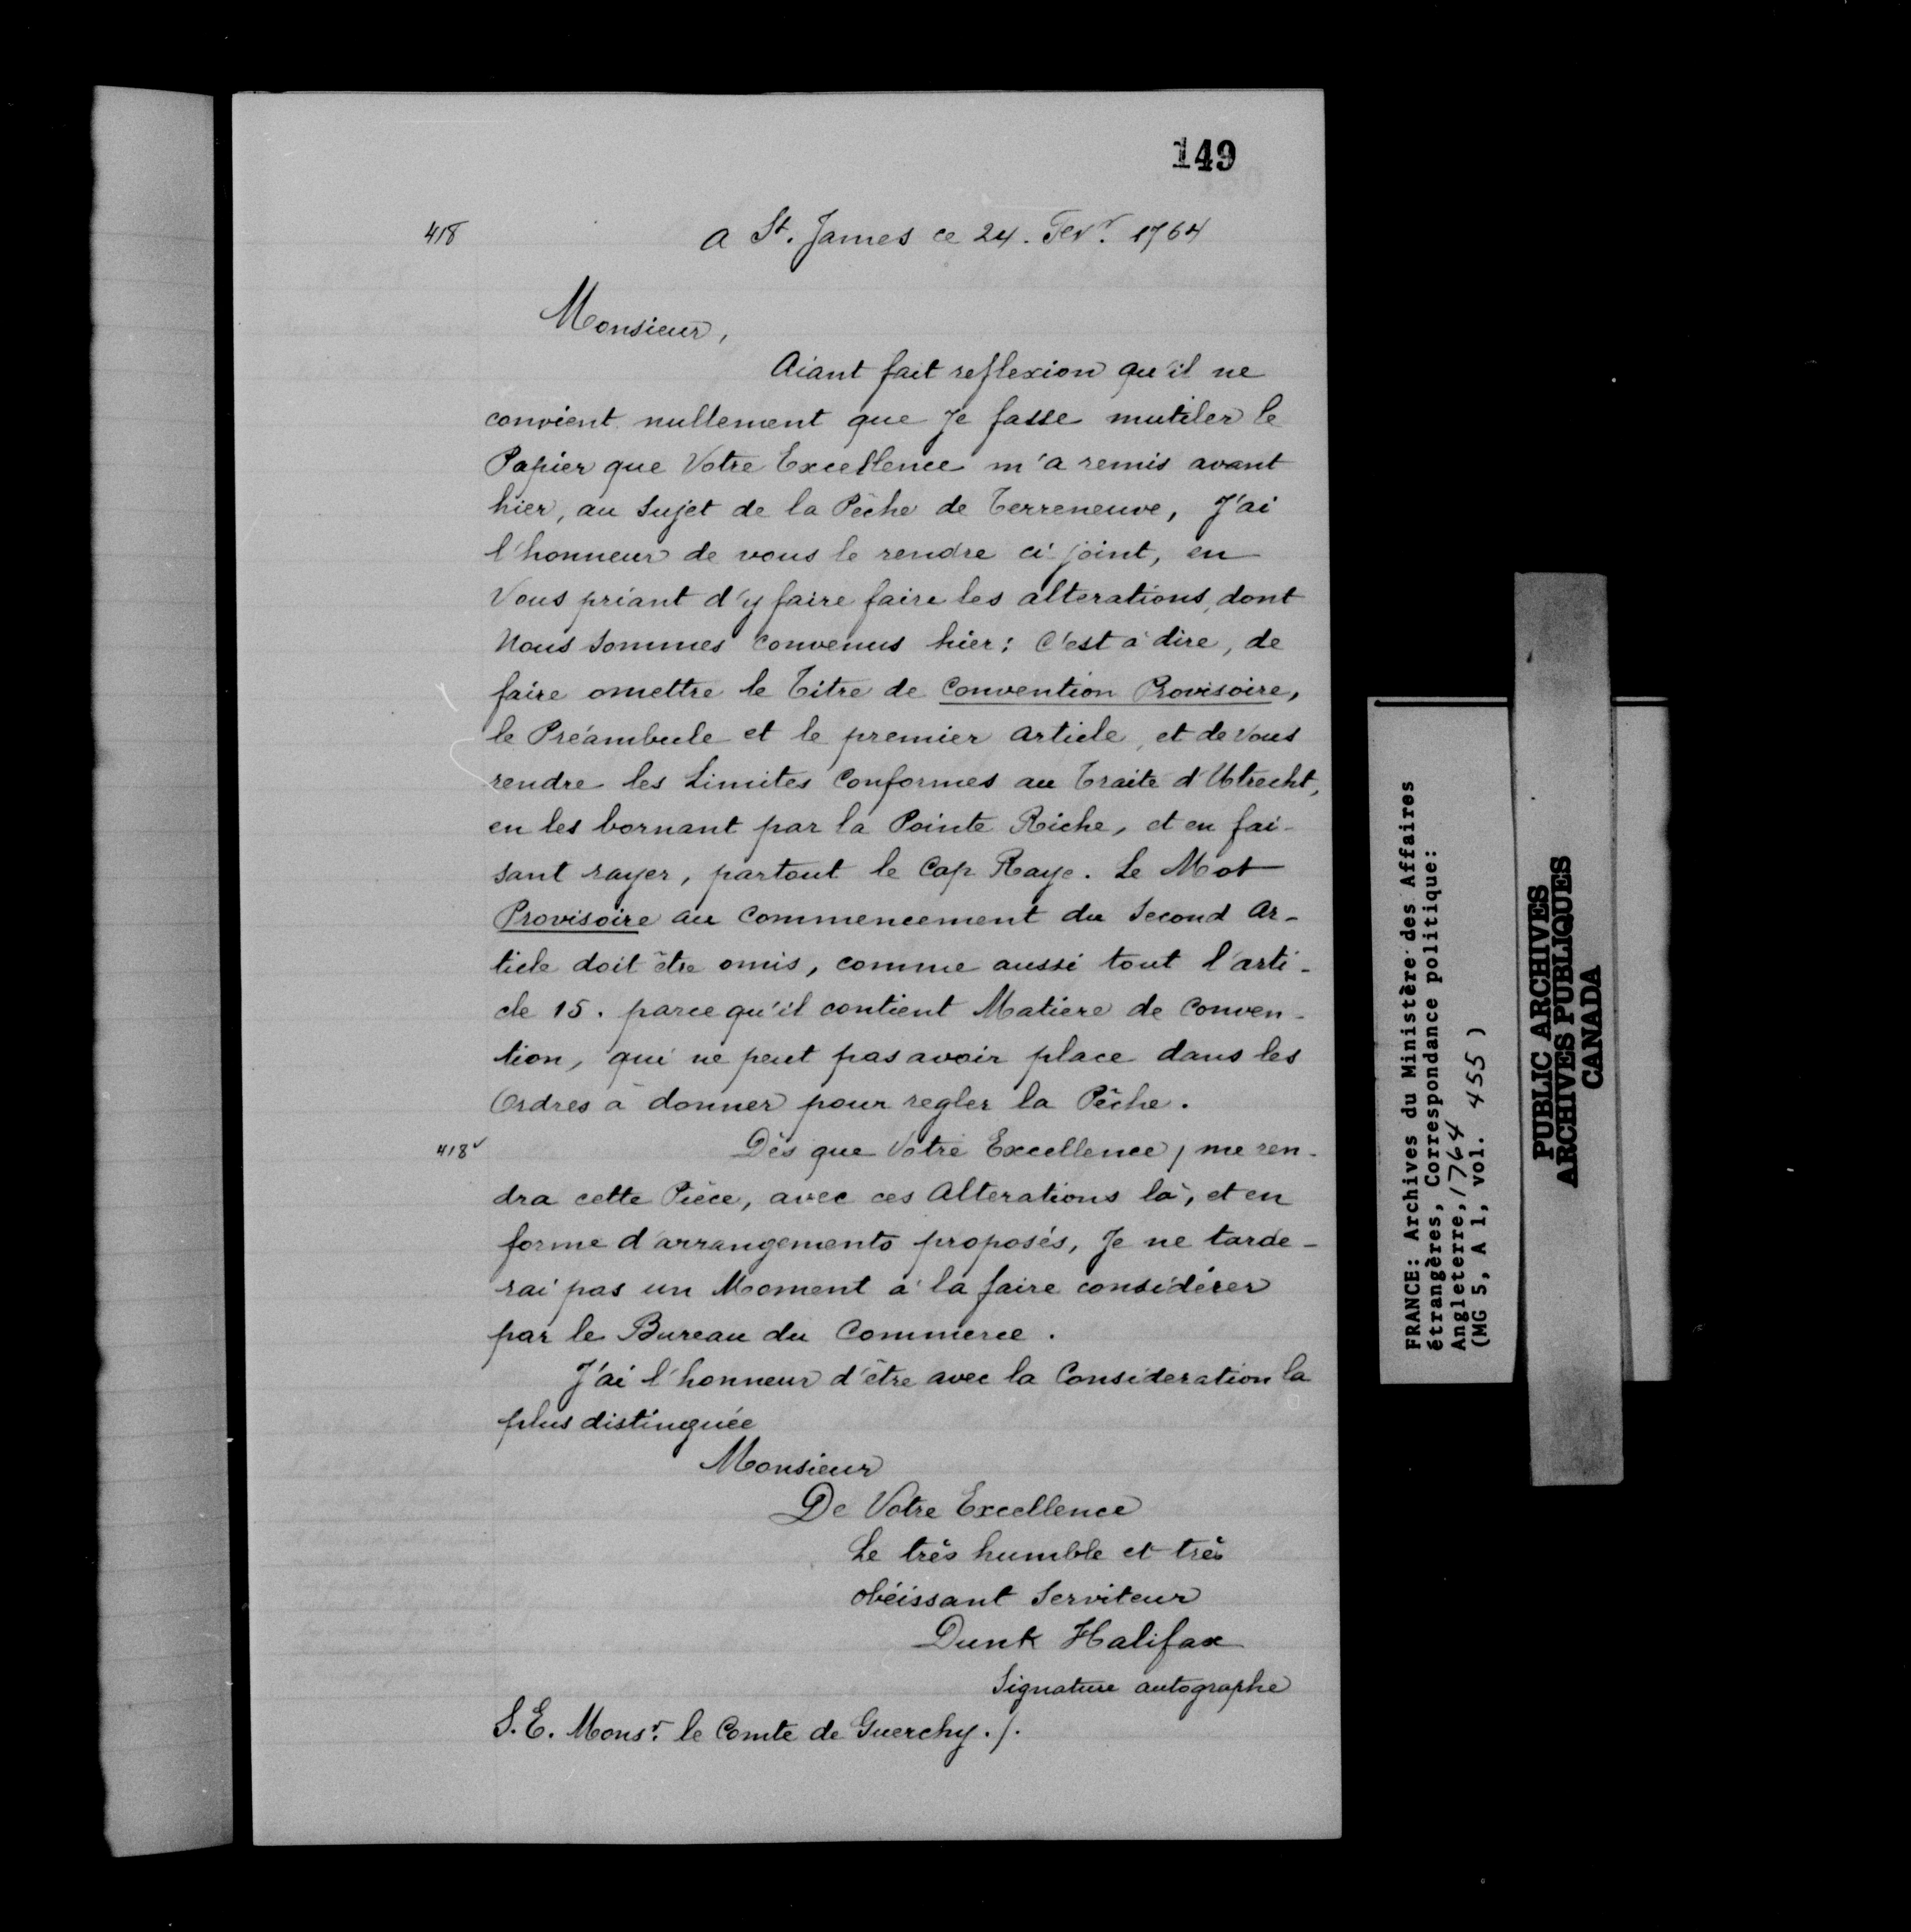 149
418
A St. James ce 24. Fevr. 1764
Monsieur,
Aiant fait reflexion qu'il ne
convient nullement que Je fasse mutiler le
Papier que Votre Excellence m'a remis avant
hier, au Sujet de la Pêche de Terreneuve, J'ai
l'honneur de vous le rendre ci-joint, en
Vous priant d'y faire faire les alterations, dont
Nous Sommes Convenus hier: C'est à dire, de
faire omettre le Titre de Convention Provisoire,
le Préambule et le premier Article, et de Vous
rendre les Limites Conformes au Traité d'Utrecht,
en les bornant par la Pointe Riche, et en fai-
sant rayer, partout le Cap Raye. Le Mot
Provisoire au Commencement du Second Ar-
ticle doit être omis, comme aussi tout l'arti-
cle 15. parce qu'il contient Matiere de Conven-
tion, qui ne peut pas avoir place dans les
Ordres à donner pour regler la Pêche.
418v
Dès que Votre Excellence, me ren-
dra cette Pièce, avec ces Alterations là, et en
forme d'arrangements proposés, Je ne tarde-
rai pas un Moment à la faire considérer
par le Bureau du Commerce.
J'ai l'honneur d'être avec la Consideration la
plus distinguée
Monsieur
De Votre Excellence
Le très humble et très
obéissant Serviteur
Dunk Halifax
Signature autographe
S. E. Monsr. le Comte de Guerchy./.
FRANCE: Archives du Ministère des Affaires
étrangères, Correspondance politique:
Angleterre, 1764
(MG 5, A 1, vol. 455)
PUBLIC ARCHIVES
ARCHIVES PUBLIQUES
CANADA